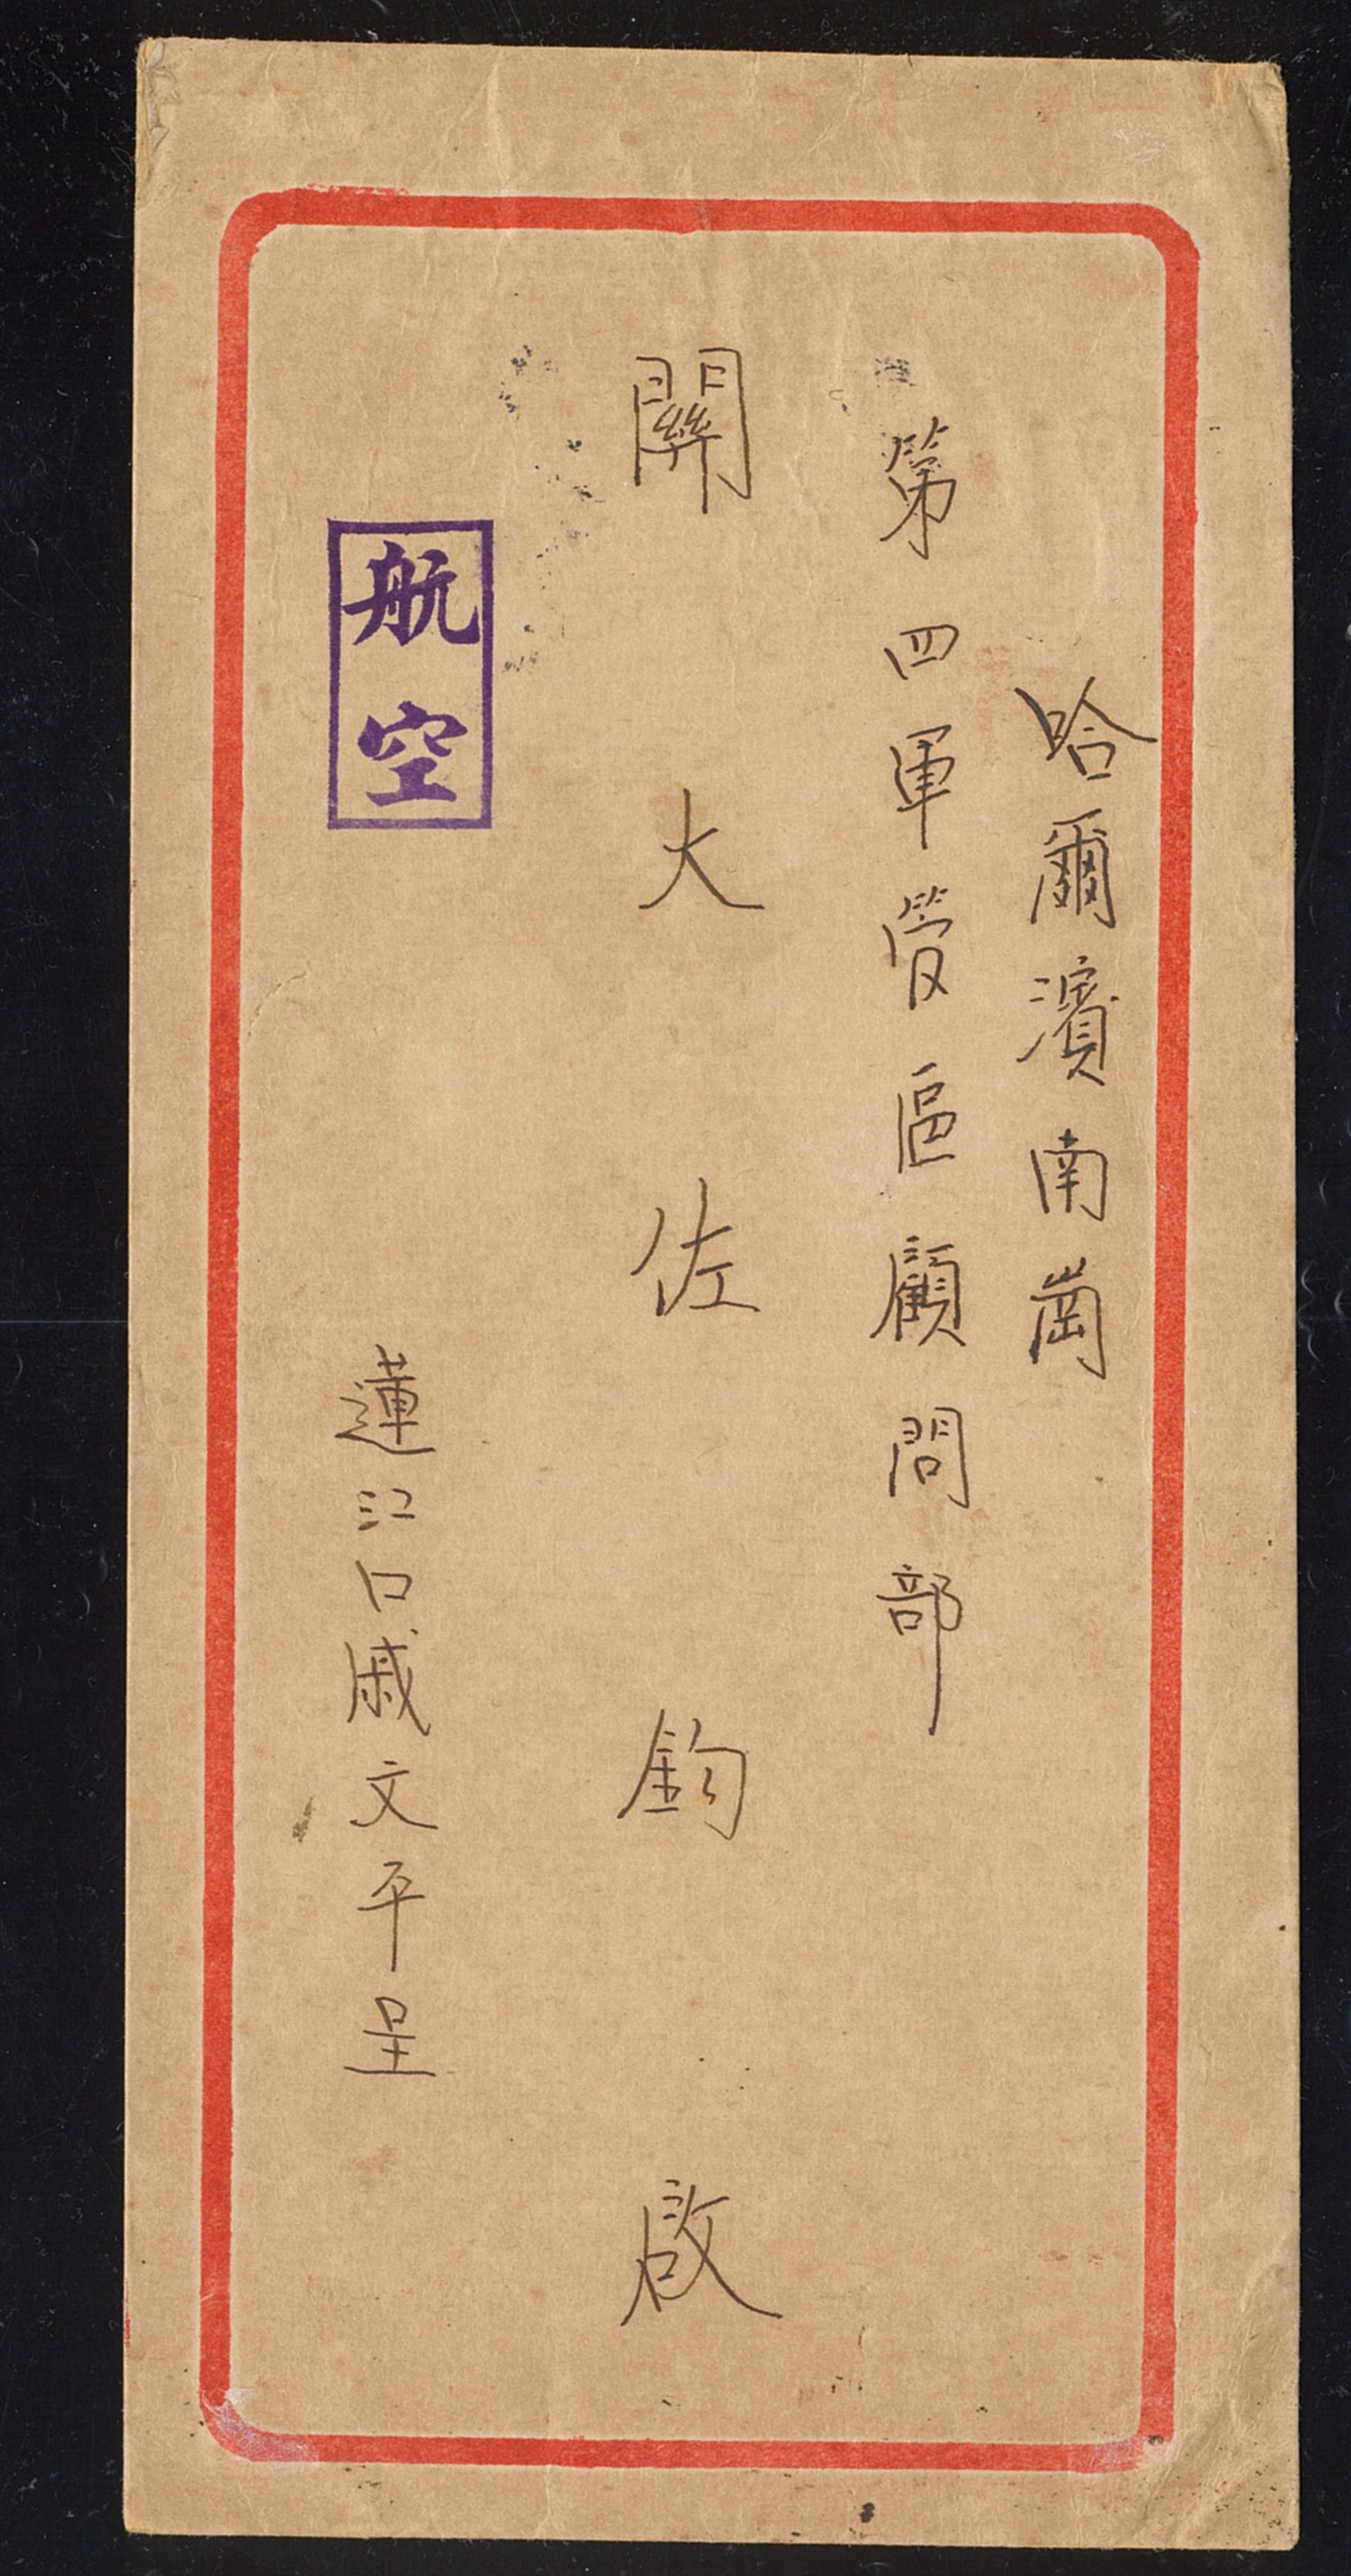 哈爾濱南崗
第四軍管區顧問部
關大佐鈞啟
航空
蓮江口戚文平呈